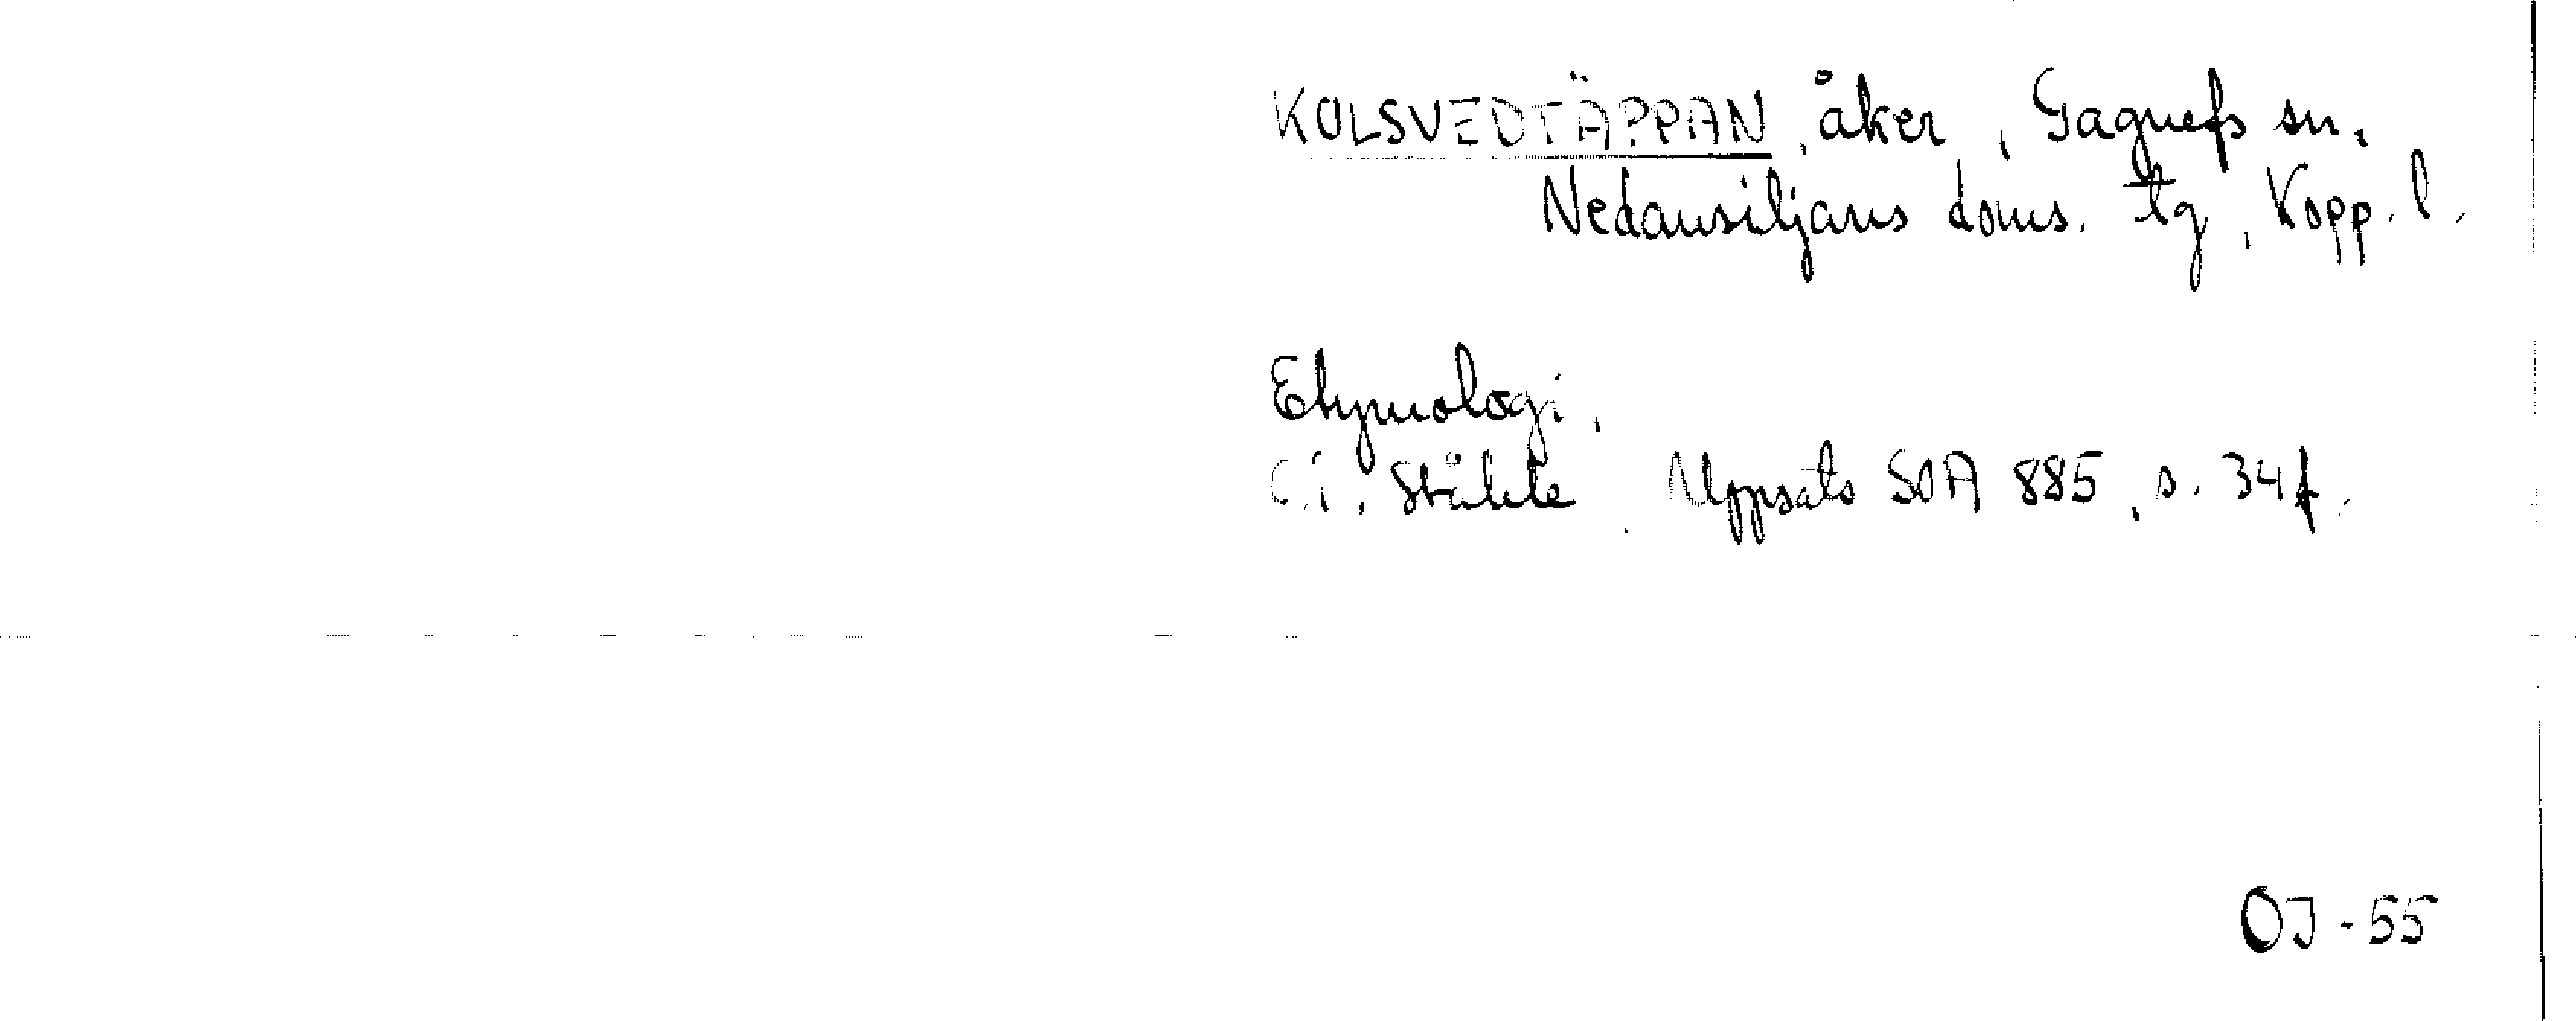 KOLSVEDTÄPPAN, åker, Gagnefs sn,
Nedansiljans doms. tg, Kopp. l.
Etymologi.
C.I. Ståhle. Uppsats SOA 885, s. 34f.
OJ-55